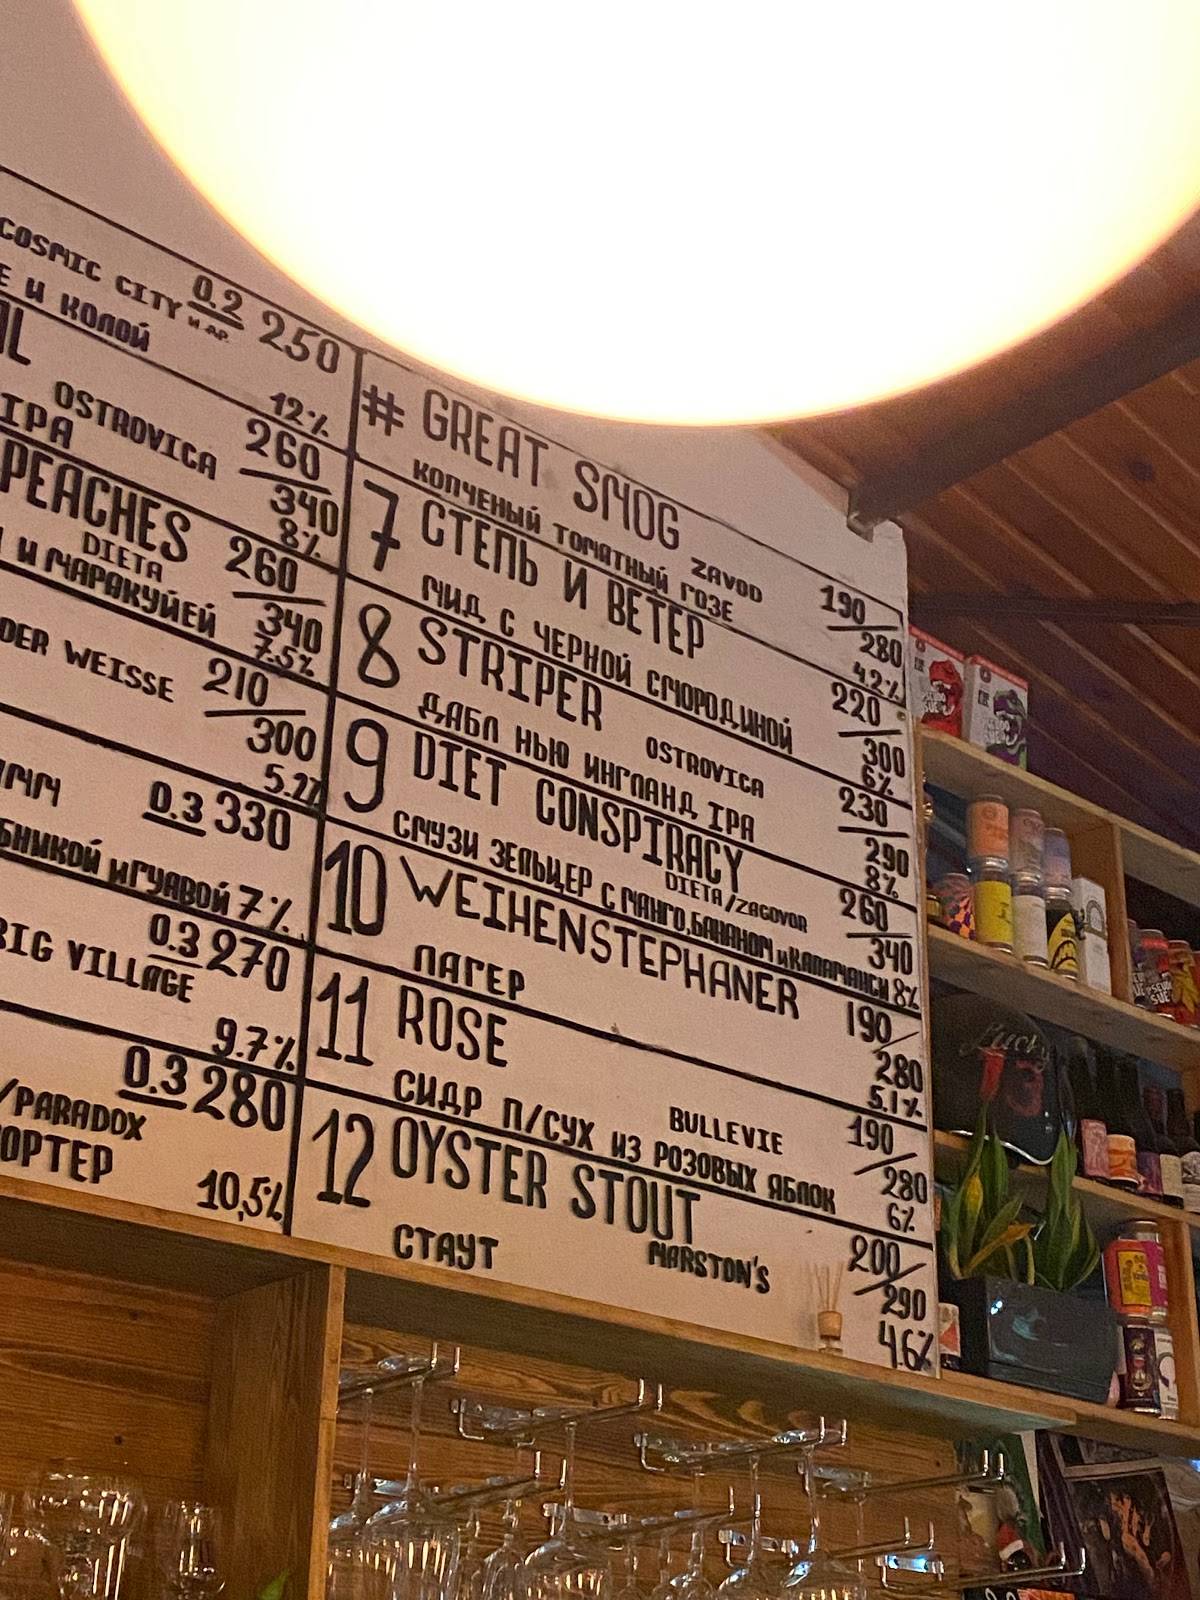 COSMIC CITY И ДР. 0.2 250
Е И КОЛОЙ
12%
OSTROVICA 260
340
IPA 8%
PEACHES 260
DIETA 340
И МАРАКУЙЕЙ 7.5%
DER WEISSE 210
300
5.2%
0.3 330
БНИКОЙ И ГУАВОЙ 7%
0.3 270
BIG VILLAGE
9.7%
0.3 280
/PARADOX
ОРТЕР 10,5%
# GREAT SMOG ZAVOD 190
КОПЧЕНЫЙ ТОМАТНЫЙ ГОЗЕ 280
4.2%
7 СТЕПЬ И ВЕТЕР 220
МИД С ЧЕРНОЙ СМОРОДИНОЙ 300
6%
8 STRIPER OSTROVICA 230
ДАБЛ НЬЮ ИНГЛАНД IPA 290
8%
9 DIET CONSPIRACY 260
DIETA/ZAGOVOR 340
СМУЗИ ЗЕЛЬЦЕР С МАНГО, БАНАНОМ И КАЛАМАНСИ 8%
10 WEIHENSTEPHANER 190
ЛАГЕР 280
5.1%
11 ROSE BULLEVIE 190
СИДР П/СУХ ИЗ РОЗОВЫХ ЯБЛОК 280
6%
12 OYSTER STOUT 200
СТАУТ MARSTON'S 290
4.6%